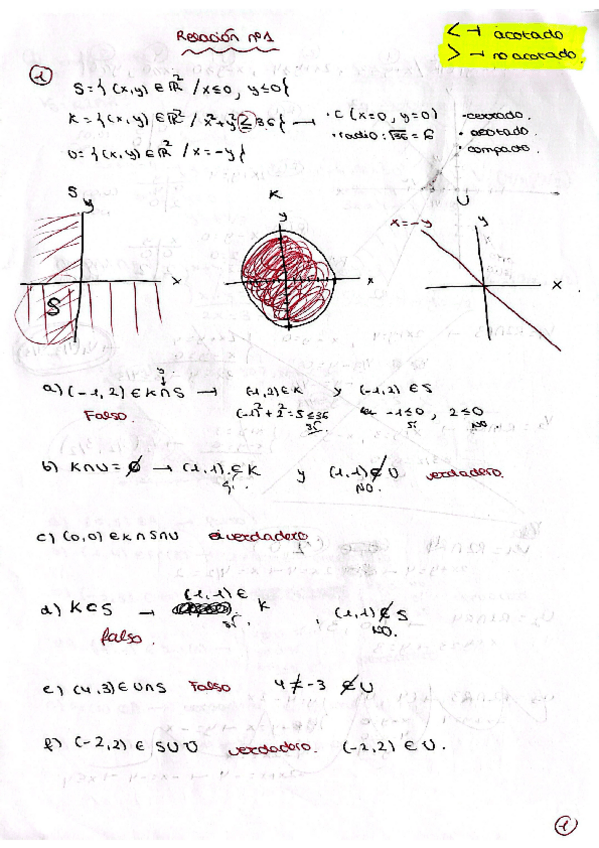 Relación nº1
< → acotado
> → no acotado.
1
S = { (x,y) ∈ ℝ² / x≤0, y≤0 {
K = { (x,y) ∈ ℝ² / x²+y² ≤ 36 { → · C (x=0, y=0) · cerrado.
· radio: √36 = 6 · acotado.
U = { (x,y) ∈ ℝ² / x = -y { · compacto.
S K U
y y x=-y y
x x x
S
y
a) (-1,2) ∈ K∩S → (-1,2) ∈ K y (-1,2) ∈ S
Falso. (-1)²+2²=5≤36 -1≤0, 2≤0
sí. sí NO.
b) K∩U = ∅ → (1,1) ∈ K y (1,1) ∉ U verdadero.
sí. NO.
c) (0,0) ∈ K∩S∩U verdadero
(1,1) ∈
d) K⊂S → K, (1,1) ∉ S
falso. sí. NO.
e) (4,3) ∈ U∩S Falso 4 ≠ -3 ∉ U
f) (-2,2) ∈ S∪U verdadero. (-2,2) ∈ U.
1